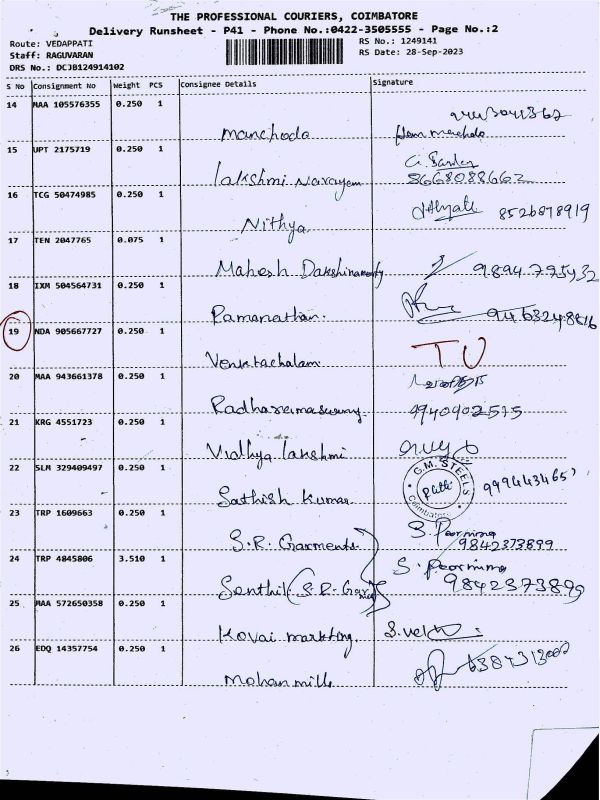 THE PROFESSIONAL COURIERS, COIMBATORE
Delivery Runsheet - P41 - Phone No.:0422-3505555 - Page No.:2
Route: VEDAPPATI RS No.: 1249141
Staff: RAGUVARAN RS Date: 28-Sep-2023
DRS No.: DCJB124914102
S No Consignment No Weight PCS Consignee Details Signature
14 MAA 105576355 0.250 1
Manchoda
15 UPT 2175719 0.250 1
Lakshmi Narayan 8668088662
16 TCG 50474985 0.250 1
Nithya 8526878919
17 TEN 2047765 0.075 1
Mahesh Dakshinamorty
18 IXM 504564731 0.250 1
Ramanathan
19 NDA 905667727 0.250 1 TU
Venktachalam
20 MAA 943661378 0.250 1
Radharamaswamy 9940902515
21 KRG 4551723 0.250 1
Vidhya Lakshmi
22 SLM 329409497 0.250 1 G.M. STEELS Coimbatore
Sathish Kumar
23 TRP 1609663 0.250 1 S. Poornima
S.R. Garments 9842373899
24 TRP 4845806 3.510 1 S. Poornima
Senthil (S.R. Gar 9842373899
25 MAA 572650358 0.250 1
Kovai markting. S.velu
26 EDQ 14357754 0.250 1
Mohan mills